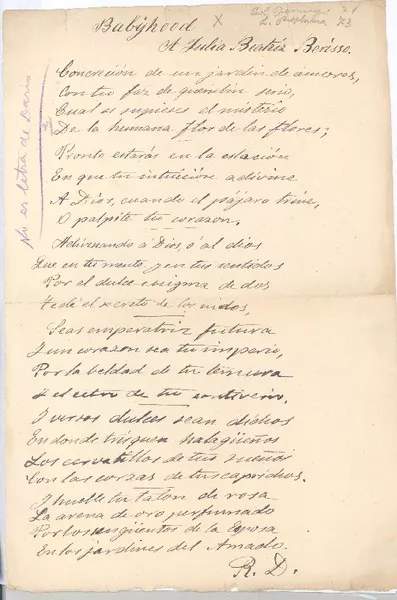 Babyhood
X
A Julia Beatriz Berisso.
No es letra de Darío
Concreción de un jardín de amores,
Con tu faz de querubín serio,
Cual si supieses el misterio
De la humana flor de las flores;
Pronto estarás en la estación
En que tu intuición adivine
A Dios, cuando el pájaro trine,
O palpite tu corazon;
Adivinando á Dios, ó al dios
Que en tu mente, y en tus sentidos
Por el dulce enigma de dos
Te dé el secreto de los nidos,
Seas emperatriz futura
Y un corazon sea tu imperio,
Por la beldad de tu ternura
Y el cetro de tu cautiverio.
Y versos dulces sean dichos
En donde trisquen halagüeños
Los cervatillos de tus sueños
Con las corzas de tus caprichos.
Y huelle tu talon de rosa
La arena de oro perfumado
Por los ungüentos de la Esposa
En los jardines del Amado.
R. D.